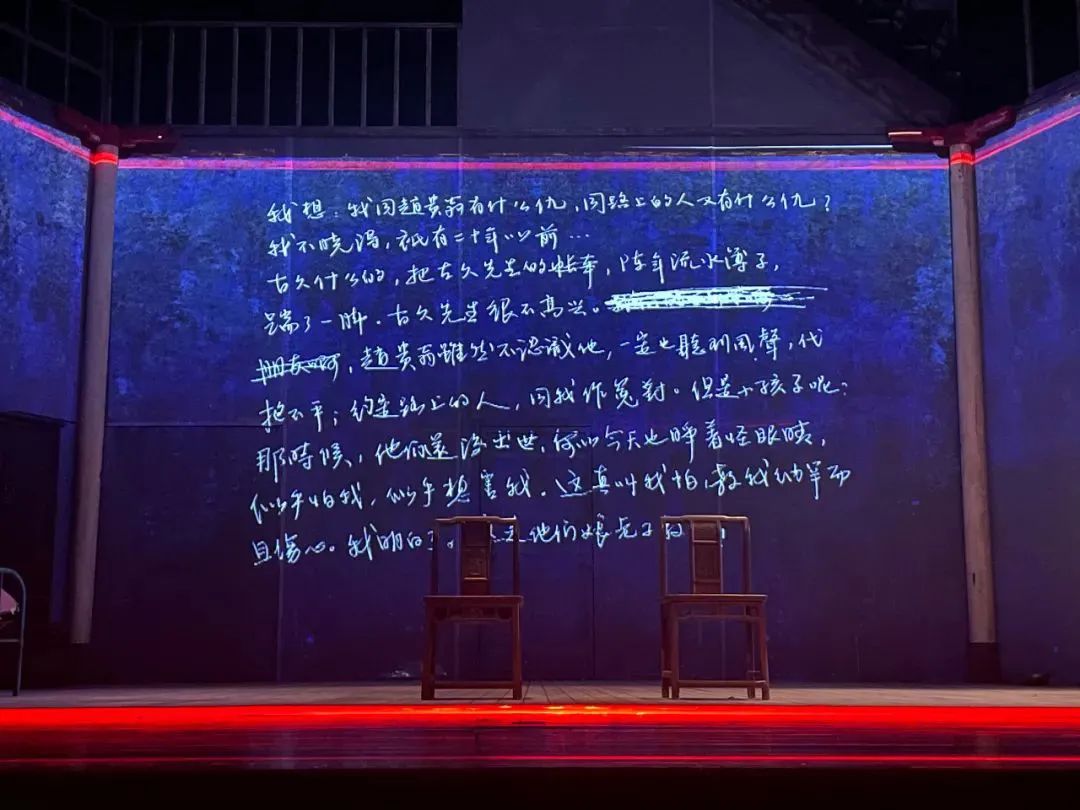 我想：我同趙贵翁有什么仇，同路上的人又有什么仇？
我不晓得，祇有二十年以前…
古久什么的，把古久先生的帐本，陈年流水簿子，
踹了一脚．古久先生很不高兴。
，趙贵翁雖然不認識他，一定也聽到風聲，代
抱不平；约定路上的人，同我作冤對。但是小孩子呢：
那時候，他们還没出世，何以今天也睁着怪眼睛，
似乎怕我，似乎想害我．这真叫我怕，教我纳罕而
且傷心。我明白了。 他们娘老子教